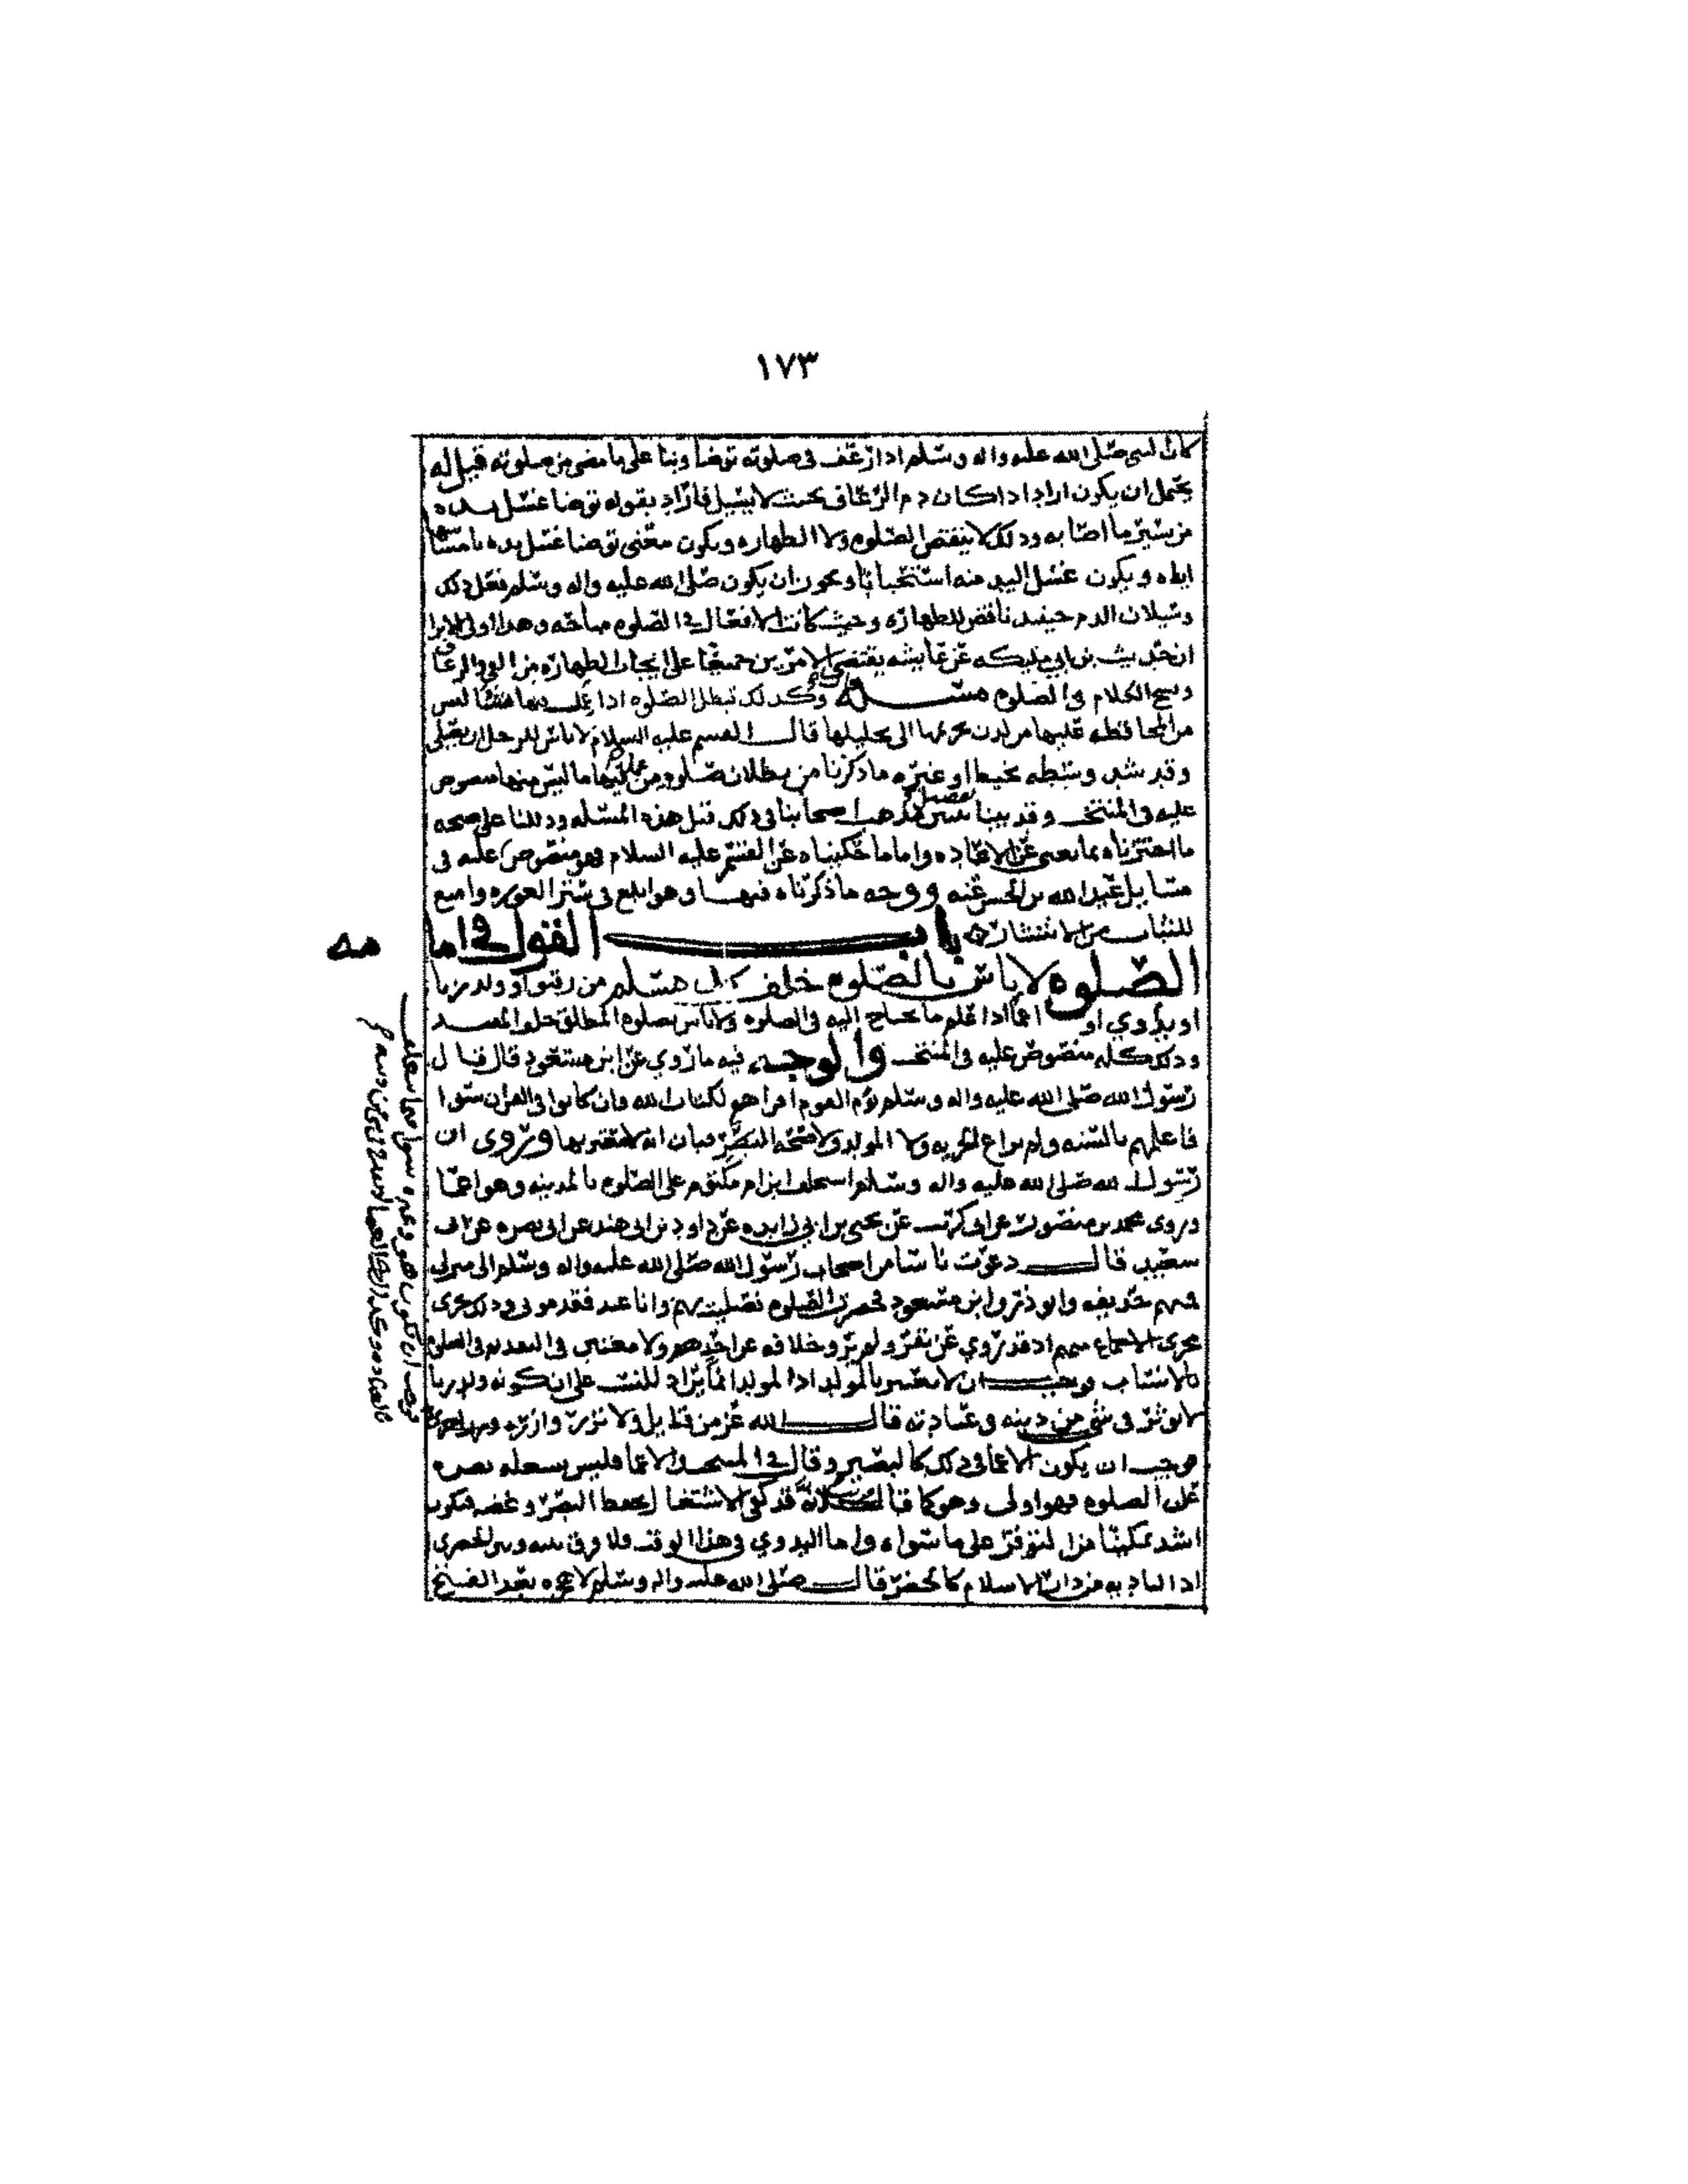 ١٧٣
كان النبي صلى الله عليه واله وسلم اذا رعف في صلوته توضا وبنا على ما مضى من صلوته قيل له
يحتمل ان يكون اراد اذا كان دم الرعاف بحيث لا يسيل فاراد بقوله توضا غسل يده
من يسير ما اصابه وذلك لا ينقض الصلوه ولا الطهاره ويكون معنى توضا غسل يده
اياه ويكون غسل اليد منه استحبابا ويجوز ان يكون صلى الله عليه واله وسلم فعل ذلك
وسيلان الدم حينئذ ناقض للطهاره وحيث كانت الافعال في الصلوه مباحه وهذا اولى
ان حديث بن ابي مليكه عن عايشه يقتضي الامرين جميعا على ايجاب الطهاره من القي والرعاف
ونسخ الكلام في الصلوه مسئله وكذلك تبطل الصلوه اذا
من المحافظه عليها من لدن تحريمها الى تحليلها قال القسم عليه السلام لا باس للرجل ان يصلي
وقد شد وسطه بخيط او غيره ما ذكرنا من بطلان صلوه من عمل فيها ما ليس منها منصوص
عليه في المنتخب وقد بينا تفصيل مذهب اصحابنا في ذلك قبل هذه المسئله ودللنا على صحه
ما اخترناه بما يغني عن الاعاده واما ما حكيناه عن القسم عليه السلام فهو منصوص عليه في
مسايل عبد الله بن الحسن عنه ووجه ما ذكرناه فيها وهو ابلغ في ستر العوره وامنع
للثياب من الانتشار
باب القول في امامه
الصلوه لا باس بالصلوه خلف كل مسلم من رق او ولد زنا
او بدوي او اعما اذا علم ما يحتاج اليه في الصلوه ولا باس بصلوه المطلق خلف المقيد
وذلك كله منصوص عليه في المنتخب والوجه فيه ما روي عن ابن مسعود قال قال
رسول الله صلى الله عليه واله وسلم يؤم القوم اقراهم لكتاب الله وان كانوا في القران سوا
فاعلمهم بالسنه ولم يراع الحريه ولا المولد ولا صحه البصر فبان انه لا معتبر بها وروى ان
رسول الله صلى الله عليه واله وسلم استخلف ابن ام مكتوم على الصلوه بالمدينه وهو اعما
وروى محمد بن منصور عن ابي كريب عن يحيى بن ابي زايده عن داود بن ابي هند عن ابي نصره عن ابي
سعيد قال دعوت ناسا من اصحاب رسول الله صلى الله عليه واله وسلم الى منزلي
فيهم حذيفه وابو ذر وابن مسعود فحضرت الصلوه فصليت بهم وانا عبد فقدموني وذلك جرى
مجرى الاجماع منهم اذ قد روي عن نفر ولم يرو خلافه عن احدهم ولا معتبر في التقديم في الصلوه
بالانساب فوجب ان لا يعتبر بالمولد اذ المولد انما يراد للنسب على ان كونه ولد زنا
لا يوثر في شي من دينه وعبادته قال الله عز من قايل ولا تزر وازره وزر اخرى
فوجب ان يكون الاعما في ذلك كالبصير وقال في المنتخب والاعما فليس يشغله بصره
عن الصلوه فهو اولى وهو كما قال لانه قد كفي الاشتغال بحفظ البصر وغضه فيكون
اشد تمكينا من التوفر على ما سواه واما البدوي في هذا الوقت فلا فرق بينه وبين الحضري
اذ الباديه من دار الاسلام كالحضر قال صلى الله عليه واله وسلم لا هجره بعد الفتح